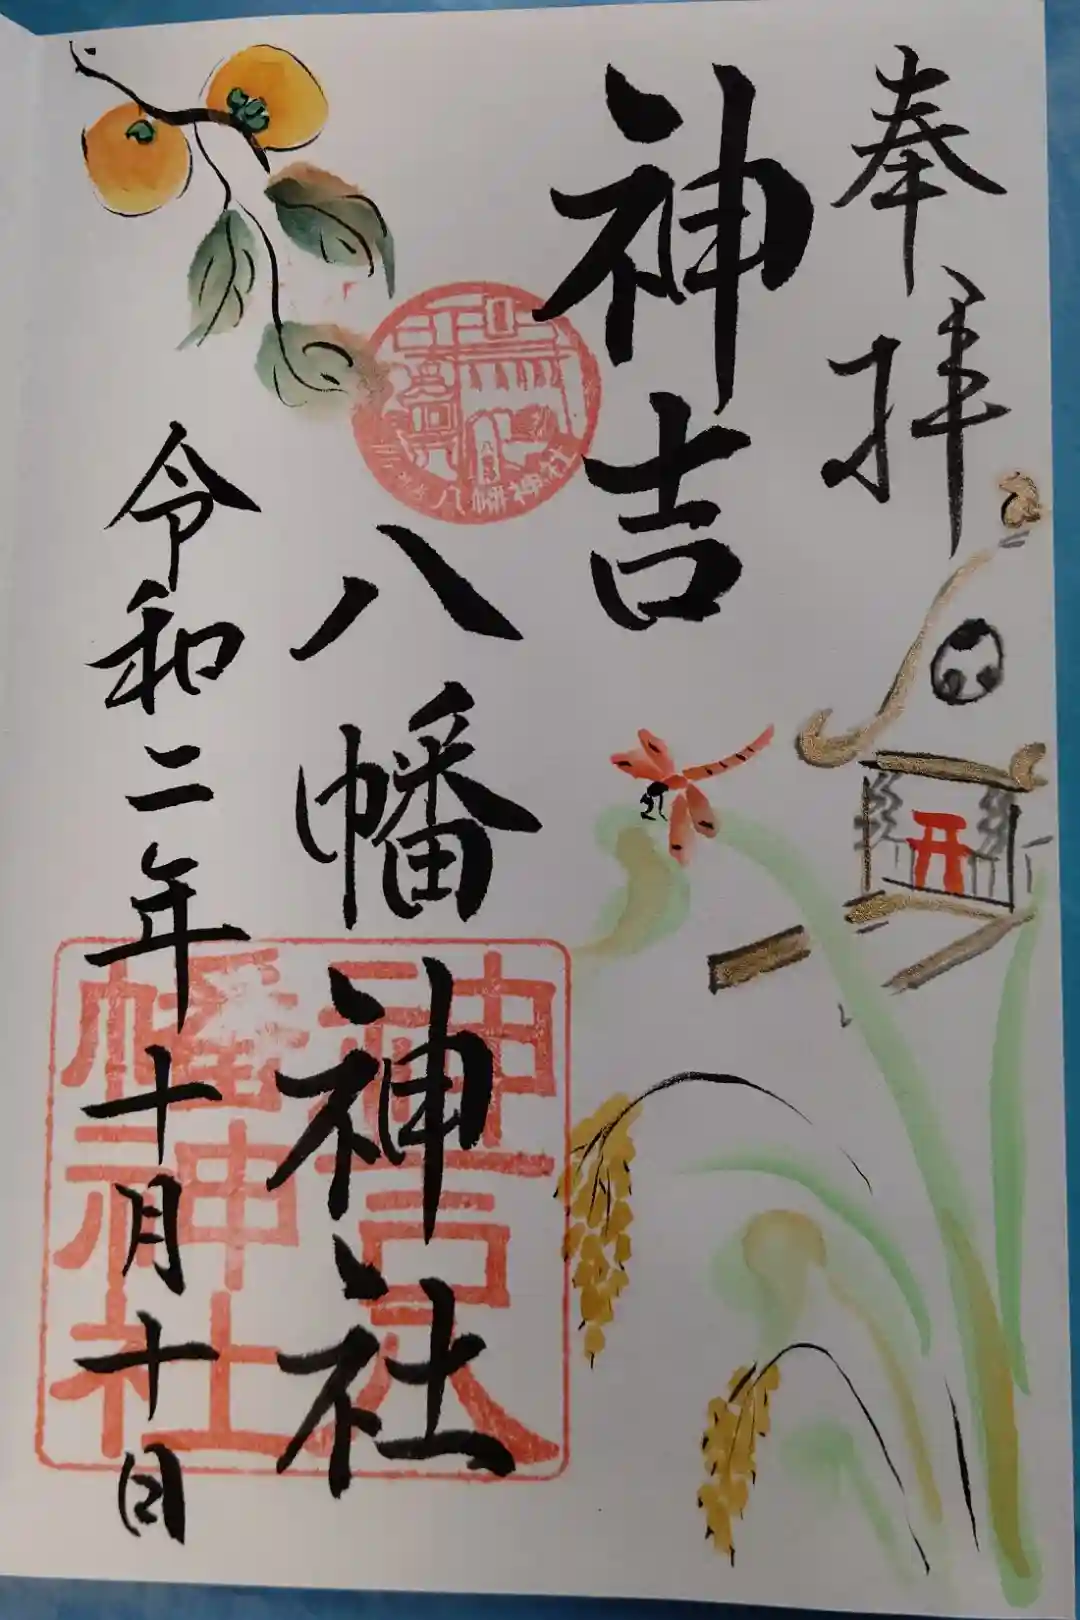 奉拝
神吉
八幡神社
令和二年十月十日
八幡神社
神吉八
幡神社